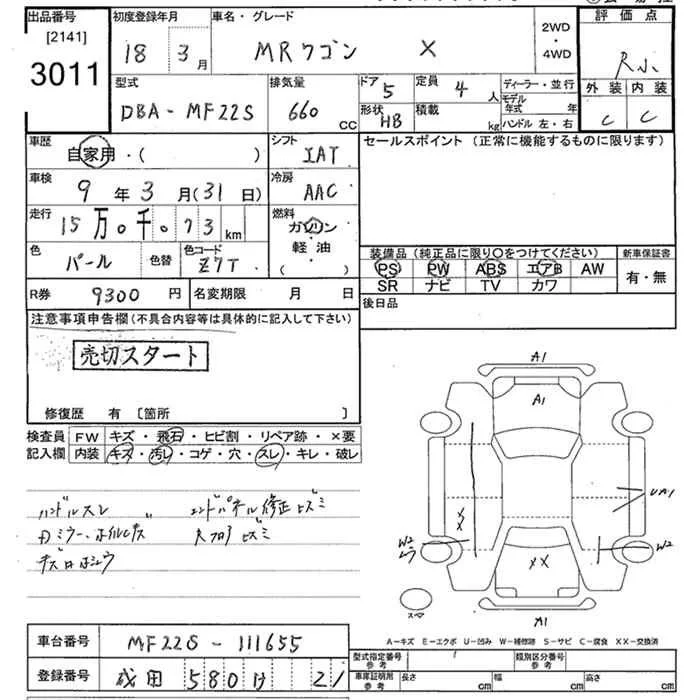 出品番号 [2141] 3011
初度登録年月 18 3月
車名・グレード MRワゴン X
2WD・4WD
評価点 R小
型式 DBA-MF22S
排気量 660 CC
ドア 5
定員 4人
形状 HB
積載 kg
ディーラー・並行
モデル年式 年
ハンドル 左・右
外装 C 内装 C
車歴 自家用・( )
シフト IAT
セールスポイント (正常に機能するものに限ります)
車検 9年3月(31日)
冷房 AAC
走行 15万0千073km
燃料 ガソリン 軽油 ( )
色 パール 色替 色コード Z7T
装備品 (純正品に限り○をつけてください) 新車保証書
PS PW ABS エアB AW 有・無
SR ナビ TV カワ
R券 9300円 名変期限 月 日
後日品
注意事項申告欄(不具合内容等は具体的に記入して下さい)
売切スタート
修復歴 有 [箇所 ]
検査員 FW キズ・飛石・ヒビ割・リペア跡・×要
記入欄 内装 キズ・汚レ・コゲ・穴・スレ・キレ・破レ
ハンドルスレ エンドパネル修正ヒズミ
ミラー・ホイルキズ
A1
A1
UA1
XX
W2
W2
XX
A1
A-キズ E-エクボ U-凹み W-補修跡 S-サビ C-腐食 XX-交換済
車台番号 MF22S-111655
型式指定番号 参考 類別区分番号 参考
登録番号 成田 580 け 21
車庫証明用 参考 長さ cm 幅 cm 高さ cm